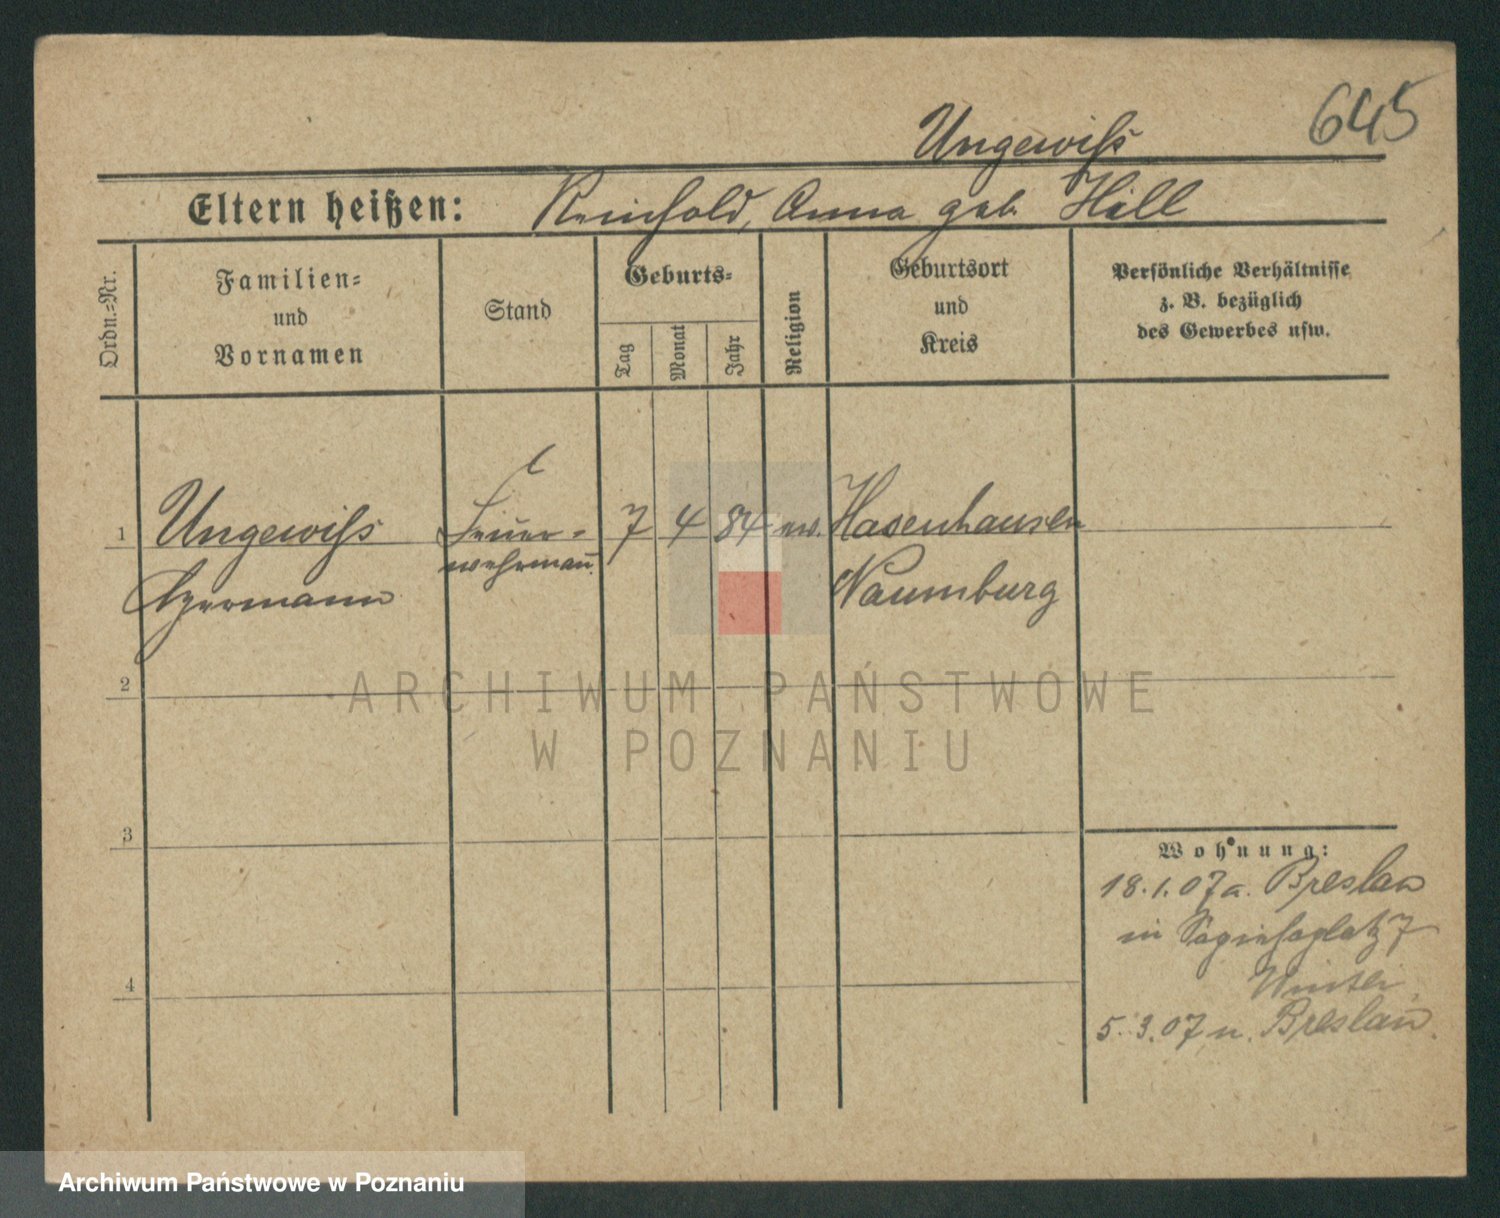 645
Ungewiß
Eltern heißen: Reinhold, Anna geb. Hill
Ordn.=Nr.
Familien=
und
Vornamen
Stand
Geburts=
Tag
Monat
Jahr
Religion
Geburtsort
und
Kreis
Persönliche Verhältnisse
z. B. bezüglich
des Gewerbes usw.
1 Ungewiß Feuer= 7 4 84 ew. Hasenhausen
wehrmann
Hermann Naumburg
2
3
4
Wohnung:
18.1.07 a. Breslau
in Sapiehaplatz 7
5.3.07 n. Breslau.
ARCHIWUM PAŃSTWOWE
W POZNANIU
Archiwum Państwowe w Poznaniu